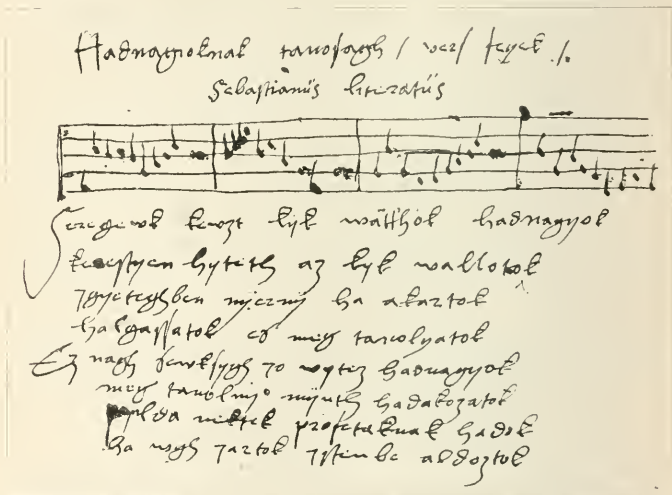 Hadnagioknak tanosagh / vers feyek /.
Sebastianüs literatüs
Seregewk kewzt kyk watthok hadnagyok
kerestyen hyteth az kyk wallotok
ygyeteghben nyerny ha akartok
halgassatok es meg tanolyatok
Ez nagh sewksygh yo wytez hadnagyok
meg tanolnyo mynth hadakozatok
pelda nektek profetaknak hadok
ha wgh jartok ystenbe aldoztok